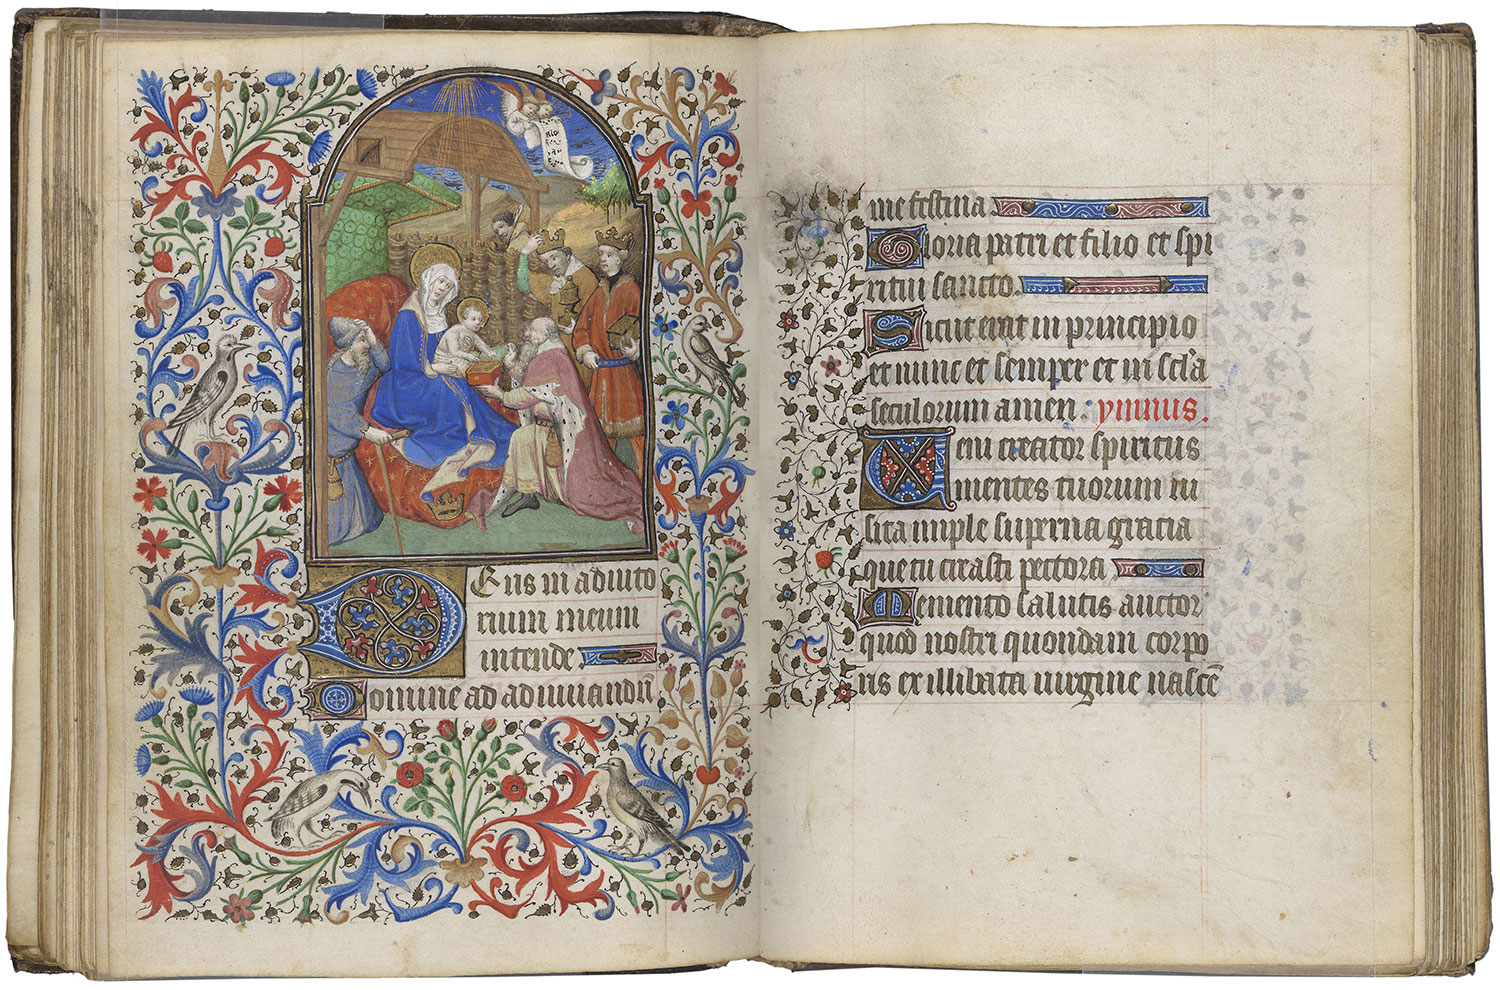 Deus in adiuto
rium meum
intende
Domine ad adiuuandū
me festina
Gloria patri et filio et spi
ritui sancto.
Sicut erat in principio
et nunc et semper et in scl'a
seculorum amen. ymnus.
Veni creator spiritus
mentes tuorum ui
sita imple superna gracia
que tu creasti pectora
Memento salutis auctor
quod nostri quondam corpo
ris ex illibata uirgine nascē